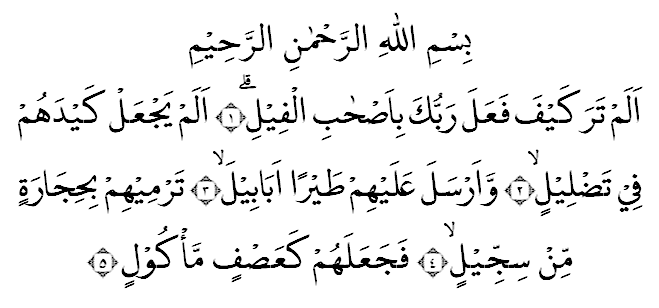 بِسْمِ اللهِ الرَّحْمٰنِ الرَّحِيْمِ
اَلَمْ تَرَ كَيْفَ فَعَلَ رَبُّكَ بِاَصْحٰبِ الْفِيْلِۗ ۝١ اَلَمْ يَجْعَلْ كَيْدَهُمْ
فِيْ تَضْلِيْلٍۙ ۝٢ وَّاَرْسَلَ عَلَيْهِمْ طَيْرًا اَبَابِيْلَۙ ۝٣ تَرْمِيْهِمْ بِحِجَارَةٍ
مِّنْ سِجِّيْلٍۙ ۝٤ فَجَعَلَهُمْ كَعَصْفٍ مَّأْكُوْلٍ ۝٥